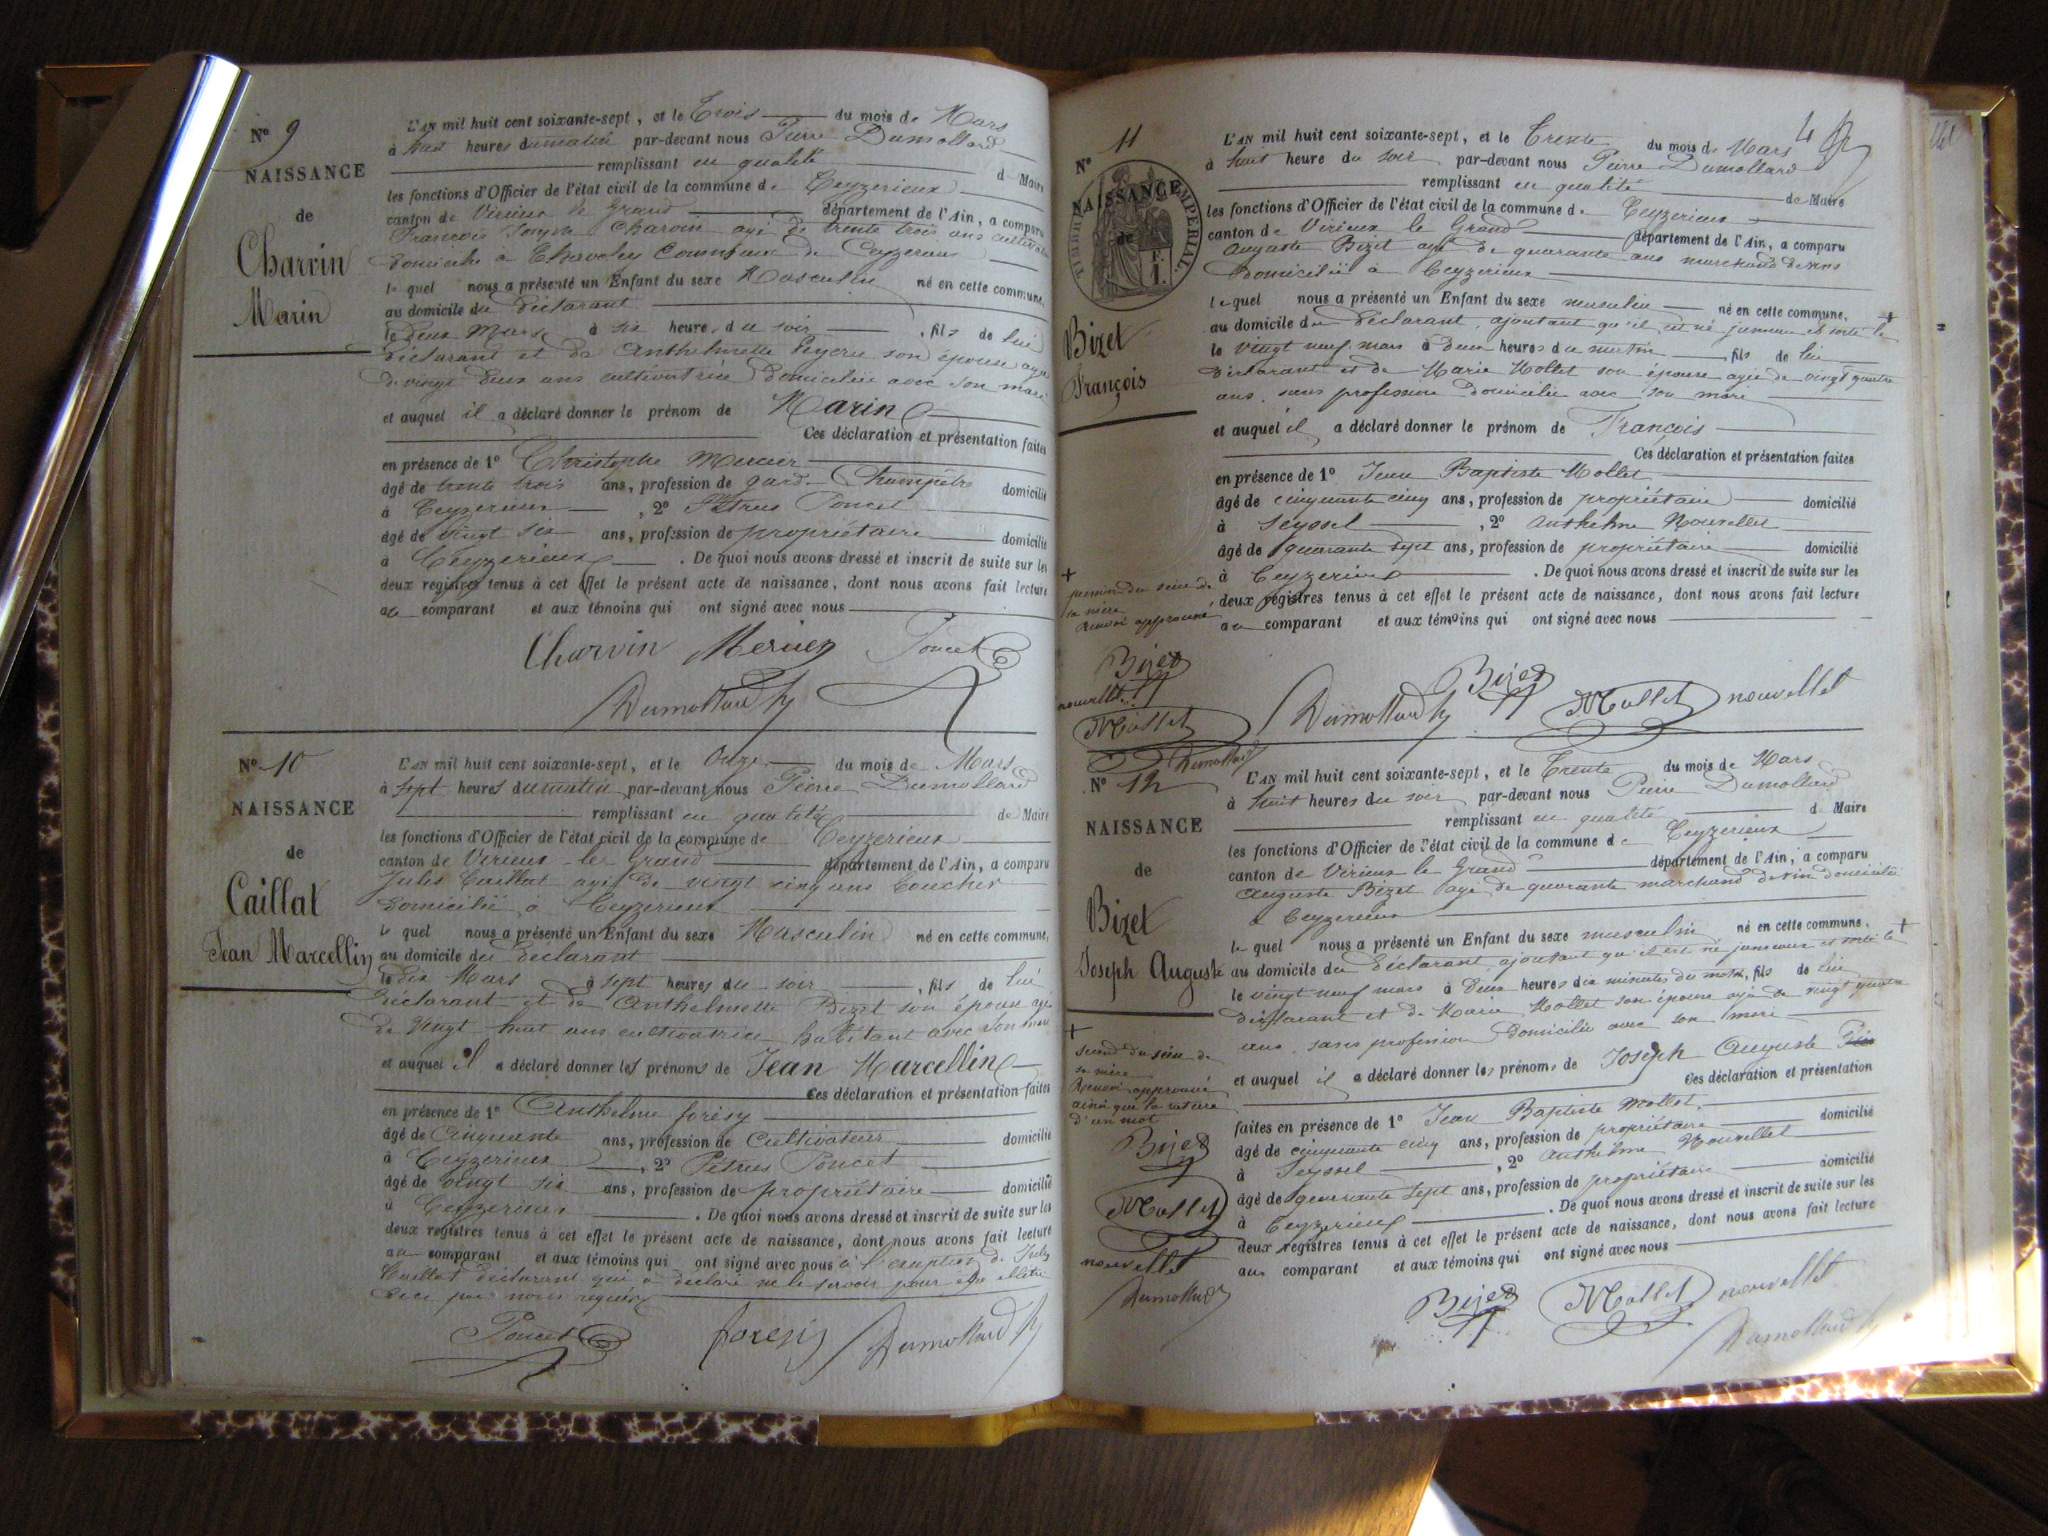 Nº 9
NAISSANCE
de
Charvin
Marin
L'AN mil huit cent soixante-sept, et le Trois du mois de Mars
à huit heures du matin par-devant nous Pierre Dumollard
remplissant en qualité de Maire
les fonctions d'Officier de l'état civil de la commune de Ceyzerieux
canton de Virieux le Grand département de l'Ain, a comparu
François Charvin agé de trente trois ans cultivateur
domicilié à Commune de
lequel nous a présenté un Enfant du sexe Masculin né en cette commune,
au domicile du déclarant
le deux Mars à six heures du soir, fils de lui
déclarant et de Anthelmette son épouse agée
de vingt deux ans cultivatrice domiciliée avec son mari
et auquel il a déclaré donner le prénom de Marin
Ces déclaration et présentation faites
en présence de 1º Christophe Mercier
âgé de trente trois ans, profession de garde Champêtre domicilié
à Ceyzerieux, 2º Pétrus Poncet
âgé de vingt six ans, profession de propriétaire domicilié
à Ceyzerieux. De quoi nous avons dressé et inscrit de suite sur les
deux registres tenus à cet effet le présent acte de naissance, dont nous avons fait lecture
au comparant et aux témoins qui ont signé avec nous
Charvin Mercier Poncet
Dumollard
Nº 10
NAISSANCE
de
Caillat
Jean Marcellin
L'AN mil huit cent soixante-sept, et le Onze du mois de Mars
à sept heures du matin par-devant nous Pierre Dumollard
remplissant en qualité de Maire
les fonctions d'Officier de l'état civil de la commune de Ceyzerieux
canton de Virieux-le Grand département de l'Ain, a comparu
Jules Caillat agé de vingt cinq ans Boucher
domicilié à Ceyzerieux
lequel nous a présenté un Enfant du sexe Masculin né en cette commune,
au domicile du déclarant
le dix Mars à sept heures du soir, fils de lui
déclarant et de Anthelmette Bizet son épouse agée
de vingt huit ans cultivatrice habitant avec son mari
et auquel il a déclaré donner les prénoms de Jean Marcellin
Ces déclaration et présentation faites
en présence de 1º Anthelme forésy
âgé de Cinquante ans, profession de Cultivateur domicilié
à Ceyzerieux, 2º Pétrus Poncet
âgé de vingt six ans, profession de propriétaire domicilié
à Ceyzerieux. De quoi nous avons dressé et inscrit de suite sur les
deux registres tenus à cet effet le présent acte de naissance, dont nous avons fait lecture
au comparant et aux témoins qui ont signé avec nous à l'exception de Jules
Caillat déclarant qui a déclaré ne le savoir pour être illétré
de ce par nous requis
Poncet foresy Dumollard
Nº 11
TIMBRE IMPERIAL
NAISSANCE
de
F.
1.
Bizet
François
L'AN mil huit cent soixante-sept, et le Trente du mois de Mars
à huit heure du soir par-devant nous Pierre Dumollard
remplissant en qualité de Maire
les fonctions d'Officier de l'état civil de la commune de Ceyzerieux
canton de Virieux le Grand département de l'Ain, a comparu
Auguste Bizet agé de quarante ans marchand de vins
domicilié à Ceyzerieux
lequel nous a présenté un Enfant du sexe masculin né en cette commune,
au domicile du déclarant, ajoutant qu'il est né jumeau et sorti le +
le vingt neuf mars à deux heures du matin, fils de lui
déclarant et de Marie Mollet son épouse agée de vingt quatre
ans, sans profession domiciliée avec son mari
et auquel il a déclaré donner le prénom de François
Ces déclaration et présentation faites
en présence de 1º Jean Baptiste Mollet
âgé de cinquante cinq ans, profession de propriétaire domicilié
à Seyssel, 2º Anthelme Nouvellet
âgé de quarante sept ans, profession de propriétaire domicilié
à Ceyzerieux. De quoi nous avons dressé et inscrit de suite sur les
deux registres tenus à cet effet le présent acte de naissance, dont nous avons fait lecture
au comparant et aux témoins qui ont signé avec nous
+
premier du sein de
sa mère
Renvoi approuvé
Bizet
nouvellet
Mollet
Dumollard
Dumollard Bizet Mollet nouvellet
Nº 12
NAISSANCE
de
Bizet
Joseph Auguste
L'AN mil huit cent soixante-sept, et le Trente du mois de Mars
à huit heures du soir par-devant nous Pierre Dumollard
remplissant en qualité de Maire
les fonctions d'Officier de l'état civil de la commune de Ceyzerieux
canton de Virieux le Grand département de l'Ain, a comparu
Auguste Bizet agé de quarante marchand de vin domicilié
à Ceyzerieux
lequel nous a présenté un Enfant du sexe masculin né en cette commune,
au domicile du déclarant, ajoutant qu'il est né jumeau et sorti le +
le vingt neuf mars à deux heures dix minutes du matin, fils de lui
déclarant et de Marie Mollet son épouse agée de vingt quatre
ans, sans profession domiciliée avec son mari
et auquel il a déclaré donner les prénoms de Joseph Auguste
Ces déclaration et présentation
faites en présence de 1º Jean Baptiste Mollet
âgé de cinquante cinq ans, profession de propriétaire domicilié
à Seyssel, 2º Anthelme Nouvellet
âgé de quarante sept ans, profession de propriétaire domicilié
à Ceyzerieux. De quoi nous avons dressé et inscrit de suite sur les
deux registres tenus à cet effet le présent acte de naissance, dont nous avons fait lecture
au comparant et aux témoins qui ont signé avec nous
+
second du sein de
sa mère
Renvoi approuvé
ainsi que la rature
d'un mot
Bizet
Mollet
nouvellet
Dumollard
Bizet Mollet nouvellet
Dumollard